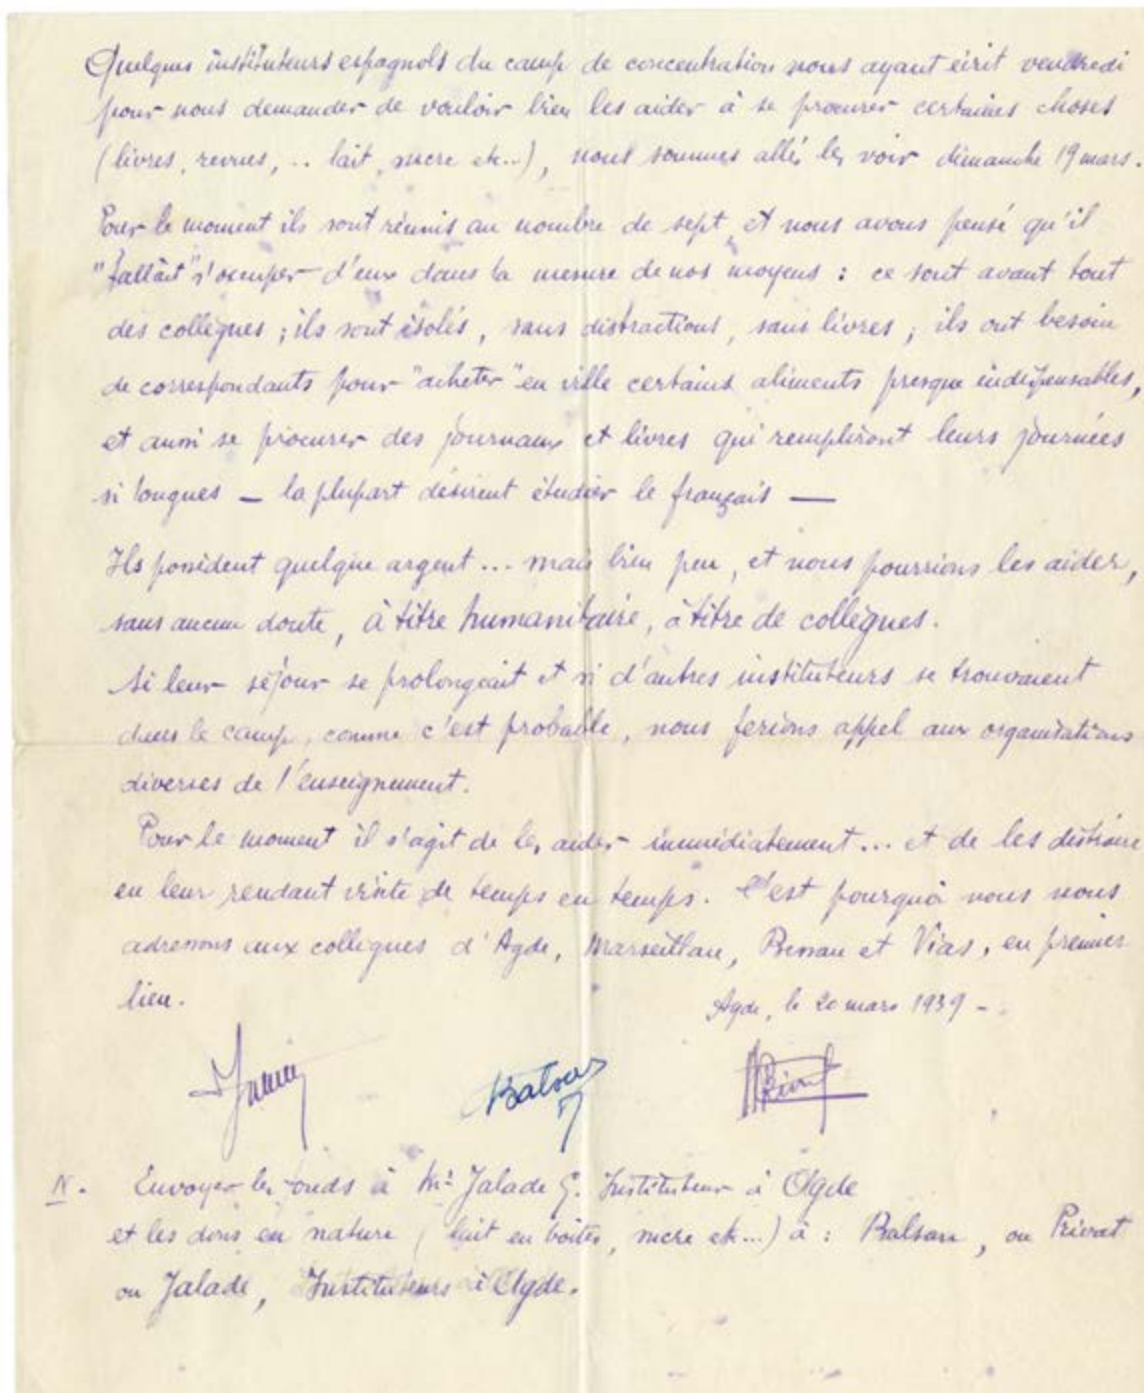 Quelques instituteurs espagnols du camp de concentration nous ayant écrit vendredi
pour nous demander de vouloir bien les aider à se procurer certaines choses
(livres, revues, .. lait, sucre etc...), nous sommes allés les voir dimanche 19 mars.
Pour le moment ils sont réunis au nombre de sept, et nous avons pensé qu'il
"fallait" s'occuper d'eux dans la mesure de nos moyens : ce sont avant tout
des collègues ; ils sont isolés, sans distractions, sans livres ; ils ont besoin
de correspondants pour "acheter" en ville certains aliments presque indispensables,
et aussi se procurer des journaux et livres qui rempliront leurs journées
si longues — la plupart désirent étudier le français —
Ils possèdent quelque argent... mais bien peu, et nous pourrions les aider,
sans aucun doute, à titre humanitaire, à titre de collègues.
Si leur séjour se prolongeait et si d'autres instituteurs se trouvaient
dans le camp, comme c'est probable, nous ferions appel aux organisations
diverses de l'enseignement.
Pour le moment il s'agit de les aider immédiatement... et de les distraire
en leur rendant visite de temps en temps. C'est pourquoi nous nous
adressons aux collègues d'Agde, Marseillan, Bessan et Vias, en premier
lieu.
Agde, le 20 mars 1939 -.
Balsan
Privat
N. Envoyer les fonds à Mr Jalade G. Instituteur à Agde
et les dons en nature (lait en boîtes, sucre etc...) à : Balsan, ou Privat
ou Jalade, Instituteurs à Agde.